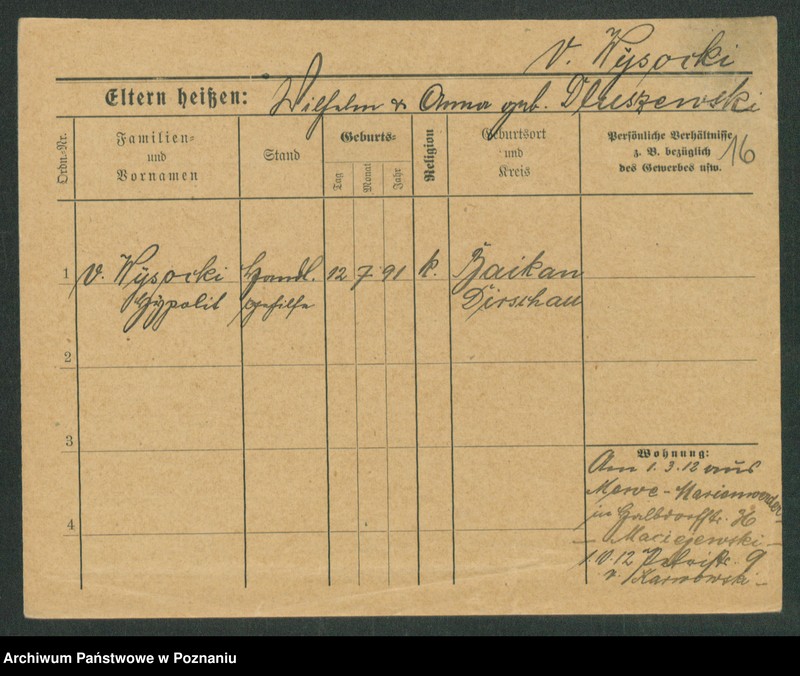 v. Wysocki
Eltern heißen: Wilhelm & Anna geb. Dluszewski
Ordn.-Nr.
Familien- und Vornamen
Stand
Geburts-
Tag
Monat
Jahr
Religion
Geburtsort und Kreis
Persönliche Verhältnisse z. B. bezüglich des Gewerbes usw.
16
1 v. Wysocki Handl. 12 7 91 k. Baikan
Hypolit gehilfe Dirschau
2
3
4
Wohnung:
Am 1.3.12 aus
Mewe - Marienwerder-
in Halbdorfstr.
- Maciejewski -
1.V.12 Petristr. 9
v. Karwowski -
Archiwum Państwowe w Poznaniu